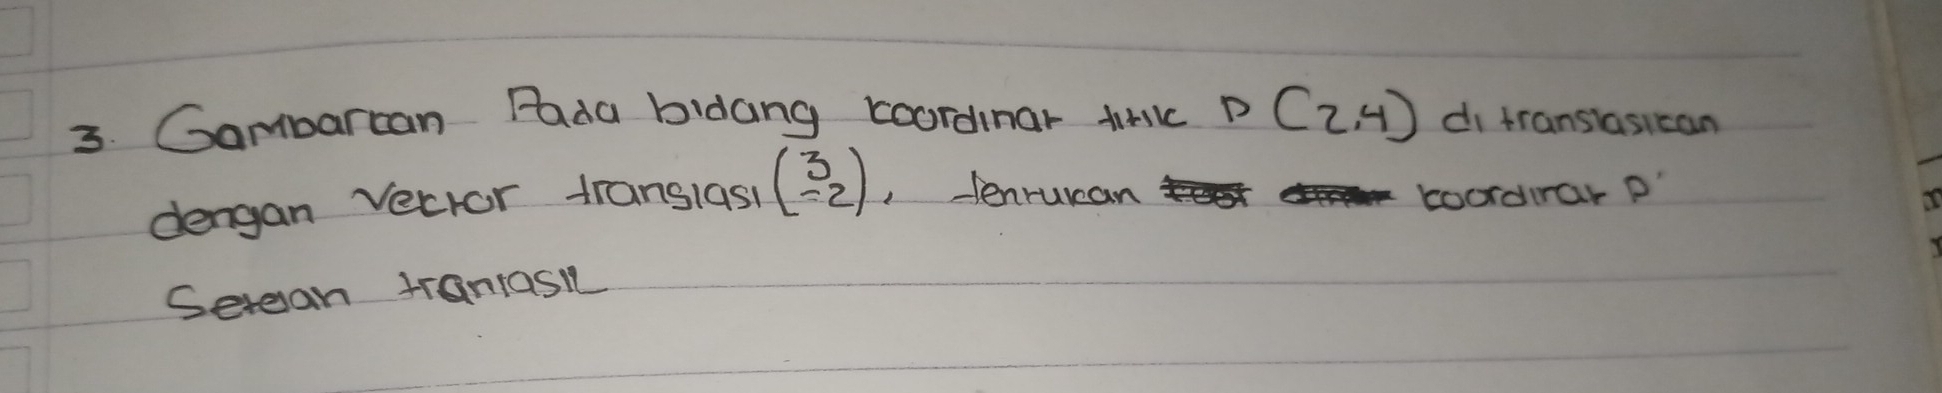 3. Gambarkan Pada bidang koordinat titik P (2,4) di translasikan
dengan vector translasi (3 -2), tentukan koordinat P'
Setelah translasi